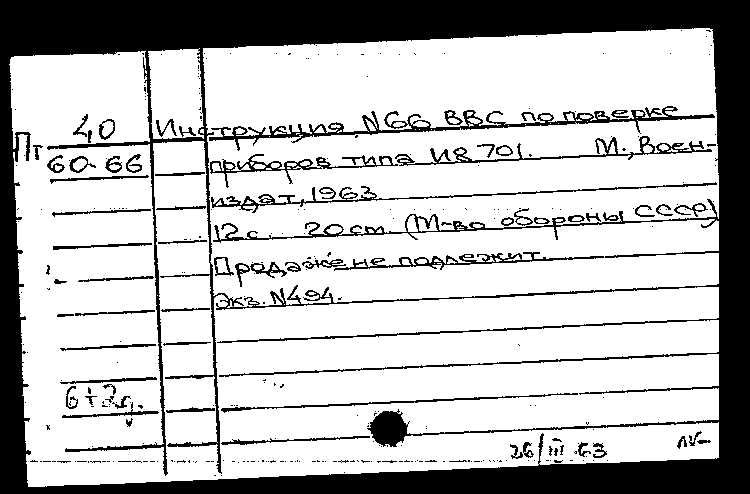 Пт 40 Инструкция N66 ВВС по поверке
60-66 приборов типа И8701. М., Воен-
издат, 1963
12 с. 20 cm (М-во обороны СССР)
Продаже не подлежит.
Экз. N494.
6+2д.
26/III 63